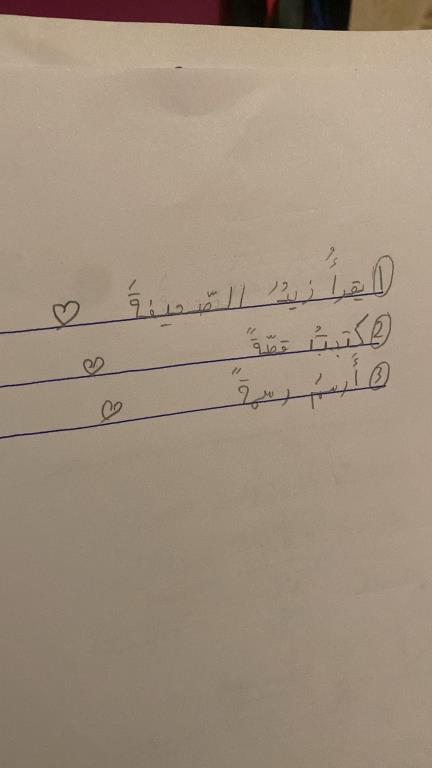 ١ يقرأُ زيدٌ الصّحيفةَ
2 كتبتُ قصّةً
3 أَرسمُ رسمةً